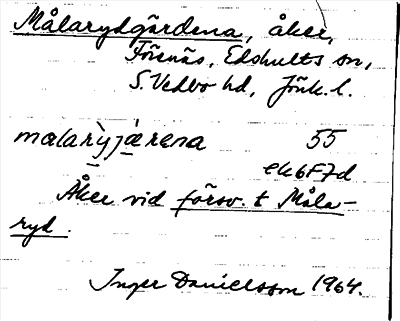 Målarydgärdena, åker,
Förenäs, Edshults sn,
S. Vedbo hd, Jönk. l.
malarỳjá̱rena 55
ek6F7d
Åker vid försv. t Måla-
ryd.
Inger Danielsson 1964.